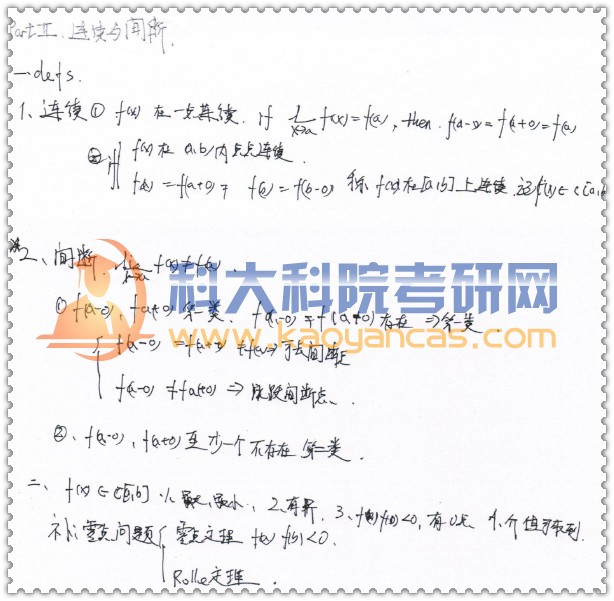 Part II、连续与间断.
一 defs.
1、连续 ① f(x) 在一点连续. if lim x→a f(x)=f(a), then. f(a-0)=f(a+0)=f(a)
② if f(x)在 a,b)内点点连续.
f(a)=f(a+0) 且 f(b)=f(b-0) 称 f(x)在[a,b]上连续 记f(x)∈c[a,b]
2、间断. lim x→a f(x)≠f(a).
科大科院考研网
www.kaoyancas.com
① f(a-0), f(a+0) 第一类、 f(a-0) 且 f(a+0)存在 ⇒第一类.
f(a-0) = f(a+0) ≠f(a)⇒可去间断点
f(a-0) ≠f(a+0) ⇒ 跳跃间断点、
②、f(a-0), f(a+0)至少一个不存在 第二类.
二、f(x)∈c[a,b] 1、最大,最小、2、有界. 3、f(a)f(b)<0, 有0点 4、介值可取到.
补:零点问题 零点定理 f(a) f(b)<0.
Rolle定理.